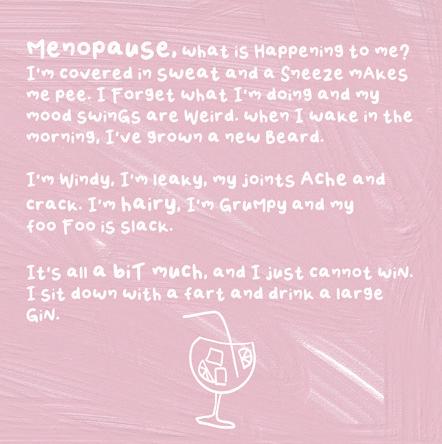 Menopause, what is Happening to me?
I'm covered in sweat and a Sneeze mAkes
me pee. I Forget what I'm doing and my
mood swinGs are Weird. when I wake in the
morning, I've grown a new Beard.
I'm Windy, I'm leaky, my joints Ache and
crack. I'm hairy, I'm GruMpy and my
foo Foo is slack.
It's all a biT much, and I just cannot wiN.
I sit down with a fart and drink a large
GiN.